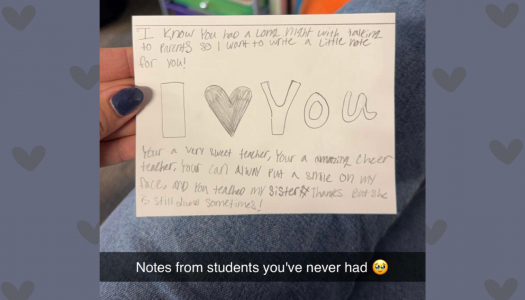 I know you had a long night with talking
to parents so I want to write a little note
for you!
I ♥ You
Your a very sweet teacher, Your a amazing cheer
teacher, Your can alway put a smile on my
face, and you teached my sister Thanks But she
is still dumb sometimes!
Notes from students you've never had 🥹